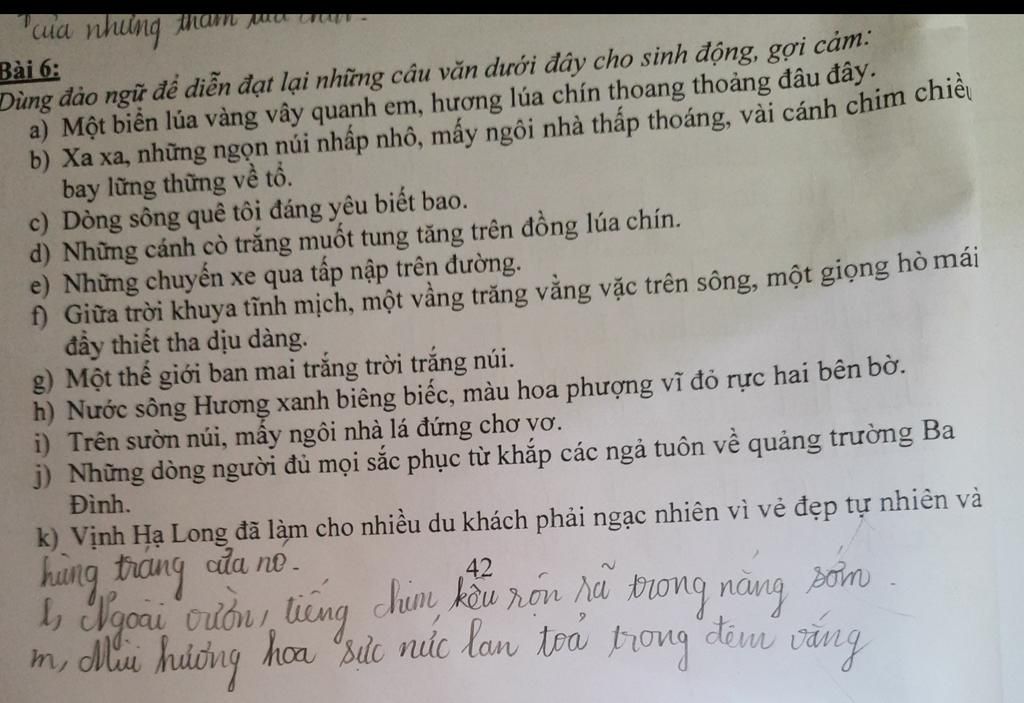 của nhưng tham
Bài 6:
Dùng đảo ngữ để diễn đạt lại những câu văn dưới đây cho sinh động, gợi cảm:
a) Một biển lúa vàng vây quanh em, hương lúa chín thoang thoảng đâu đây.
b) Xa xa, những ngọn núi nhấp nhô, mấy ngôi nhà thấp thoáng, vài cánh chim chiều
bay lững thững về tổ.
c) Dòng sông quê tôi đáng yêu biết bao.
d) Những cánh cò trắng muốt tung tăng trên đồng lúa chín.
e) Những chuyến xe qua tấp nập trên đường.
f) Giữa trời khuya tĩnh mịch, một vầng trăng vằng vặc trên sông, một giọng hò mái
đẩy thiết tha dịu dàng.
g) Một thế giới ban mai trắng trời trắng núi.
h) Nước sông Hương xanh biêng biếc, màu hoa phượng vĩ đỏ rực hai bên bờ.
i) Trên sườn núi, mấy ngôi nhà lá đứng chơ vơ.
j) Những dòng người đủ mọi sắc phục từ khắp các ngả tuôn về quảng trường Ba
Đình.
k) Vịnh Hạ Long đã làm cho nhiều du khách phải ngạc nhiên vì vẻ đẹp tự nhiên và
hùng tráng của nó.
42
l, Ngoài vườn, tiếng chim kêu rón rã trong nắng sớm.
m, Mùi hương hoa sực nức lan toả trong đêm vắng